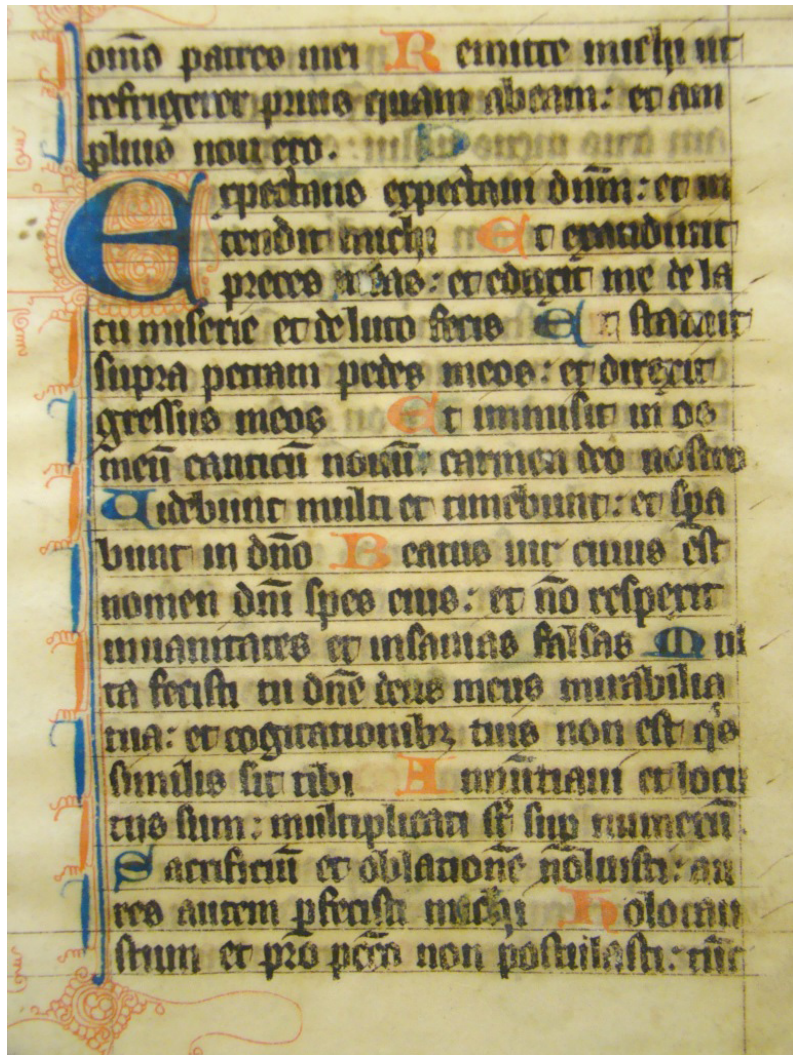 om̄s patres mei Remitte michi ut
refrigerer prius quam abeam: et am
plius non ero.
Expectans expectaui dn̄m: et in
tendit michi Et exaudiuit
preces meas: et eduxit me de la
cu miserie et de luto fecis Et statuit
supra petram pedes meos: et direxit
gressus meos Et immisit in os
meū canticū nouū: carmen deo nostro
Uidebunt multi et timebunt: et spa
bunt in dn̄o Beatus uir cuius est
nomen dn̄i spes eius: et nō respexit
in uanitates et insanias falsas Mul
ta fecisti tu dn̄e deus meus mirabilia
tua: et cogitationibꝫ tuis non est q̄s
similis sit tibi Annūtiaui et locu
tus sum: multiplicati st̄ sup numerū
Sacrificiū et oblationē nōluisti: au
res autem ꝑfecisti michi Holocau
stum et pro pctō non postulasti: tūc